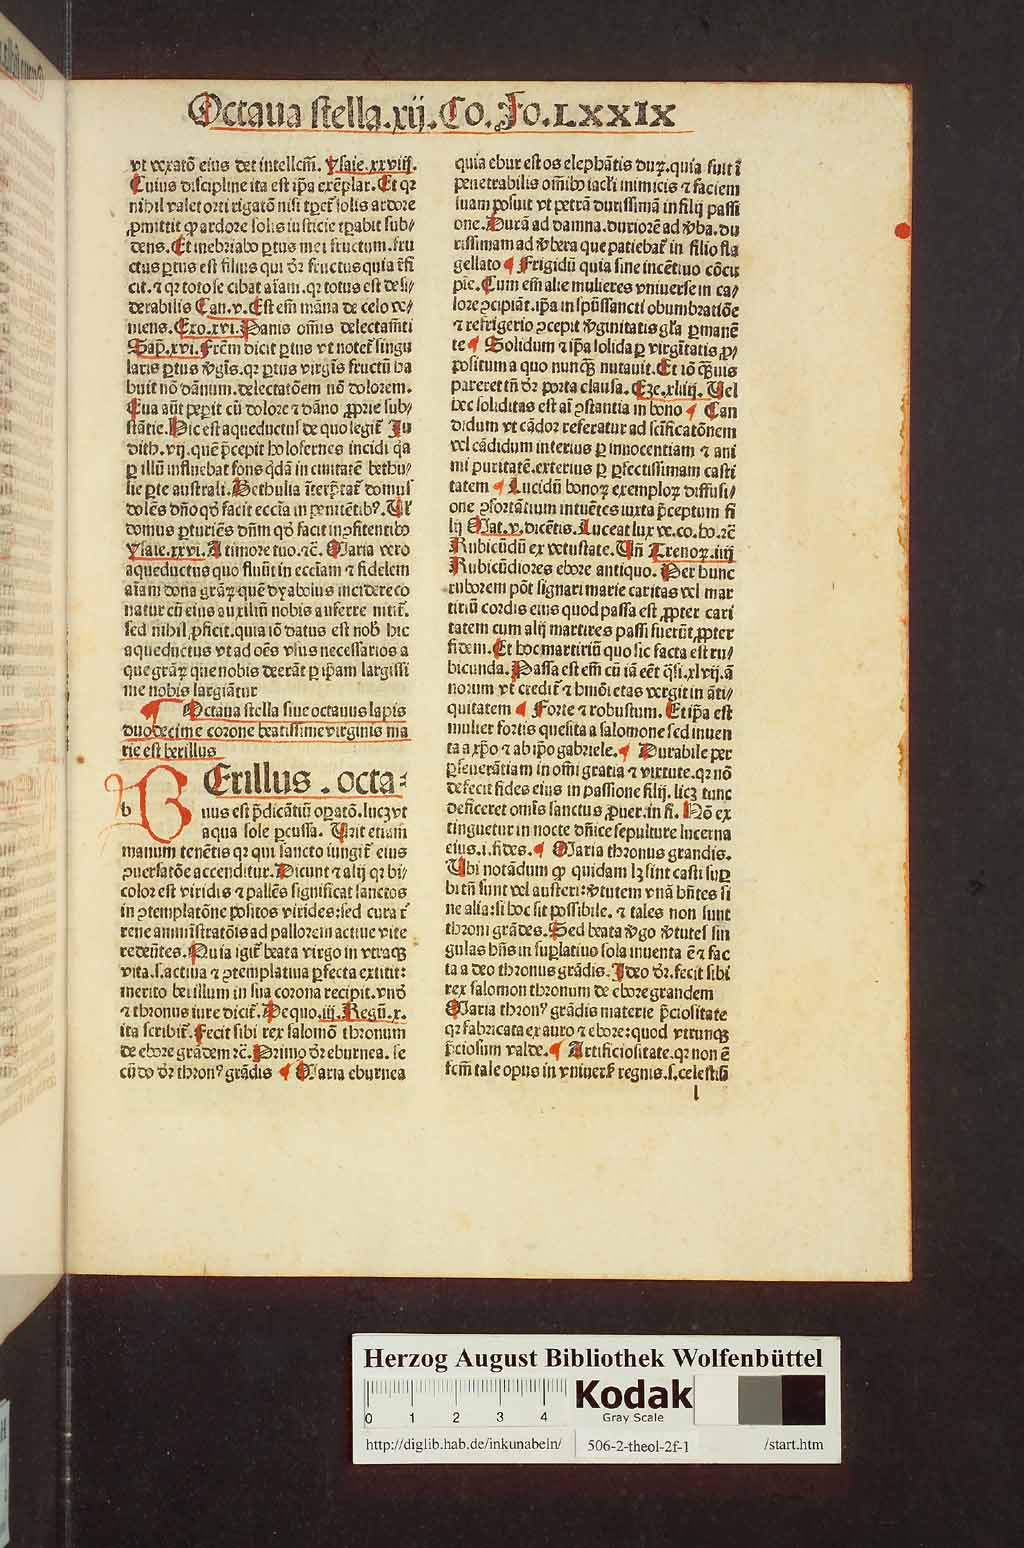 Octaua stella.xij.Co.Fo.LXXIX
vt vexatō eius det intellcm̄. Ysaie.xxviij.
Cuius discipline ita est ip̄a exēplar. Et qꝛ
nihil valet orti rigatō nisi
solis ardore
ꝓmittit ꝙ ardore solis iusticie
sub/
dens. Et inebriabo ꝑtus mei fructum. fru
ctus ꝑtus est filius qui dr̄ fructus quia
cit. ⁊ qꝛ totose cibat aīam. qꝛ totus est desi/
derabilis Can.v. Est em̄ māna de celo ve/
niens. Exo.xvi. Panis omīs delectam̄ti
Sap̄.xvi. Frc̄m dicit ꝑtus vt notet̄ singu
laris ꝑtus v̄gis. qꝛ ptus virgīs fructū ha
buit nō dānum. delectatōem nō dolorem.
Eua aūt peꝑit cū dolore ⁊ dāno ꝓprie sub/
stātie. Hic est aqueductus de quo legit̄ Ju
dith.vij. quē p̄cepit holofernes incidi q̄a
ꝑ illū influebat fons q̄dā in ciuitatē bethu/
lie ꝑte australi. Bethulia īterp̄tat̄ domus
dolēs dn̄o qd̄ facit eccīa in penitētibꝰ. Ul̄
domus ꝑturiēs dn̄m qd̄ facit in ꝯfitentibꝰ
Ysaie.xxvi. A timore tuo.⁊c̄. Maria vero
aqueductus quo fluūt in ecclīam ⁊ fidelem
aīam dona grāꝝ quē dyabolus incidere co
natur cū eius auxiliū nobis auferre nitit̄.
sed nihil ꝓficit. quia iō datus est nob̄ hic
aqueductus vt ad oēs vsus necessarios a
que grāꝝ que nobis deerāt ꝑ ip̄am largissi
me nobis largiātur
¶ Octaua stella siue octauus lapis
duodecime corone beatissime virginis ma
rie est berillus
BErillus. octa⸗
b
uus est p̄dicātiū oꝑatō. lucꝫ vt
aqua sole ꝑcussa. Urit etiam
manum tenētis qꝛ qui sancto iungit̄ eius
ꝯuersatōe accenditur. Dicunt ⁊ alij qꝛ bi/
color est viridis ⁊ pallēs significat sanctos
in ꝯtemplatōne positos virides: sed cura t̄
rene amīnistratōis ad pallorem actiue vite
redeūtes. Quia igit̄ beata virgo in vtraqꝫ
vita.s.actiua ⁊ ꝯtemplatiua ꝑfecta extitit:
merito berillum in sua corona recipit. vnd̄
⁊ thronus iure dicit̄. De quo.iij.Regū.x.
ita scribit̄. Fecit sibi rex salomō thronum
de ebore grādem ⁊c̄. Primo dr̄ eburnea. se
cūdo dr̄ thronꝰ grādis ¶ Maria eburnea
quia ebur est os elephātis duꝝ. quia fuit ī
penetrabilis om̄ibꝰ iacl'i inimicis ⁊ faciem
suam posuit vt petrā durissimā in filij passi
one. Durā ad damna. duriorē ad v̄ba. du
rissimam ad v̄bera que patiebat̄ in filio fla
gellato ¶ Frigidū quia sine incētiuo cōcu
pīe. Cum em̄ alie mulieres vniuerse in ca/
lore ꝯcipiāt. ip̄a in spūssancti obumbratiōe
⁊ refrigerio ꝯcepit v̄ginitatis gl'a ꝑmanē
te ¶ Solidum ⁊ ip̄a solida ꝑ virgītatis ꝓ/
positum a quo nunqꝫ nutauit. Et iō qm̄uis
pareret tn̄ dr̄ porta clausa. Eze.xliiij. Uel
hec soliditas est aī ꝯstantia in bono ¶ Can
didum vt cādor referatur ad sc̄ificatōnem
vel cādidum interius ꝑ innocentiam ⁊ ani
mi puritatē. exterius ꝑ ꝑfectissimam casti
tatem ¶ Lucidū bonoꝝ exemploꝝ diffusi/
one ꝯfortātium intuētes iuxta p̄ceptum fi
lij Mat.v. dicētis. Luceat lux ve.co.ho.⁊c̄
Rubicūdū ex vetustate. Un̄ Trenoꝝ.iiij
Rubicūdiores ebore antiquo. Per hunc
ruborem pōt signari marie caritas vel mar
tiriū cordis eius quod passa est ꝓpter cari
tatem cum alij martires passi fuerūt ꝓpter
fidem. Et hoc martiriū quo sic facta est ru/
bicunda. Passa est em̄ cū iā eēt q̄si.xlvij.ā
norum vt credit̄ ⁊ hmōi etas vergit in āti/
quitatem ¶ Forte ⁊ robustum. Et ip̄a est
mulier fortis quesita a salomone sed inuen
ta a xp̄o ⁊ ab ip̄o gabriele. ¶ Durabile per
ꝑseuerātiam in om̄i gratia ⁊ virtute. qꝛ nō
defecit fides eius in passione filij. licꝫ tunc
deficeret omīs sanctus ꝓuer.in fi. Nō ex
tinguetur in nocte dn̄ice sepulture lucerna
eius.i.fides. ¶ Maria thronus grandis.
Ubi notādum ꝙ quidam lꝫ sint casti suꝑ
bi tn̄ sunt vel austeri: v̄tutem vnā hn̄tes si
ne alia: si hoc sit possibile. ⁊ tales non sunt
throni grādes. Sed beata v̄go v̄tutes sin
gulas hn̄s in suꝑlatiuo sola inuenta ē ⁊ fac
ta a deo thronus grādis. Ideo dr̄. fecit sibi
rex salomon thronum de ebore grandem
Maria thronꝰ grādis materie p̄ciositate
qꝛ fabricata ex auro ⁊ ebore: quod vtrunqꝫ
p̄ciosum valde. ¶ Artificiositate. qꝛ non ē
fcm̄ tale opus in vniuers̄ regnis.s.celestibꝰ
l
Herzog August Bibliothek Wolfenbüttel
0 1 2 3 4
Kodak
Gray Scale
http://diglib.hab.de/inkunabeln/ 506-2-theol-2f-1 /start.htm